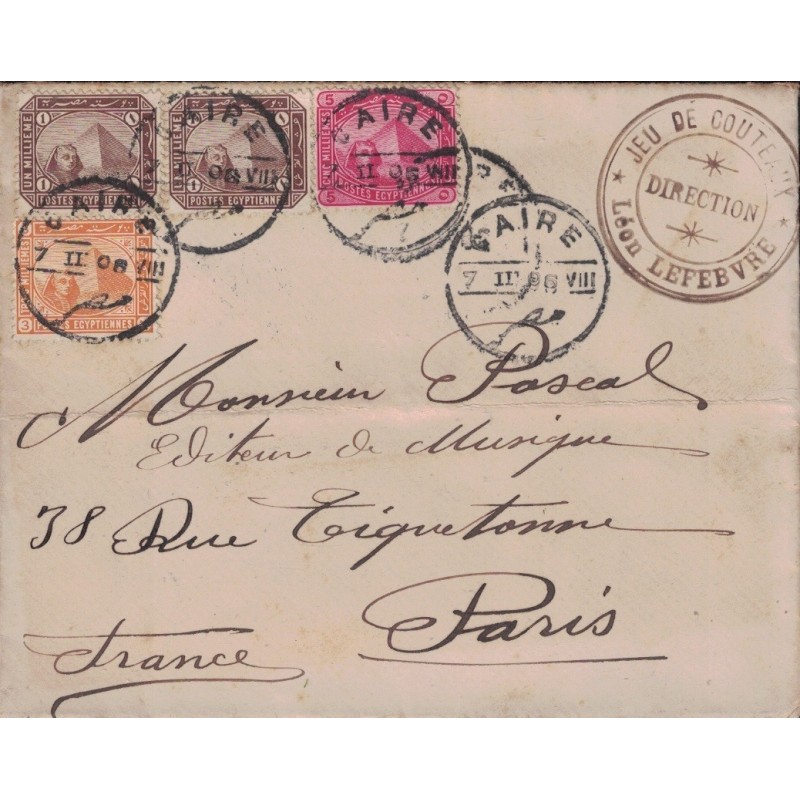 بوستة مصرية
UN MILLIEME
1 1
POSTES EGYPTIENNES
UN MILLIEME
1 1
POSTES EGYPTIENNES
5
CINQ MILLIEMES
5 5
POSTES EGYPTIENNES
3
POSTES EGYPTIENNES
CAIRE
CAIRE
7 II 06 VIII
CAIRE
7 II 06 VIII
CAIRE
7 II 06 VIII
JEU DE COUTEAUX
DIRECTION
Léon LEFEBVRE
Monsieur Pascal
Editeur de Musique
38 Rue Tiquetonne
Paris
France